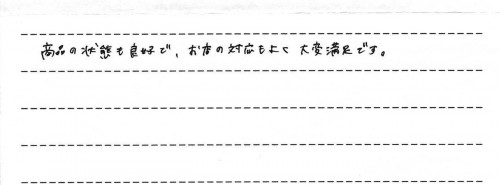 商品の状態も良好で、お店の対応もよく大変満足です。